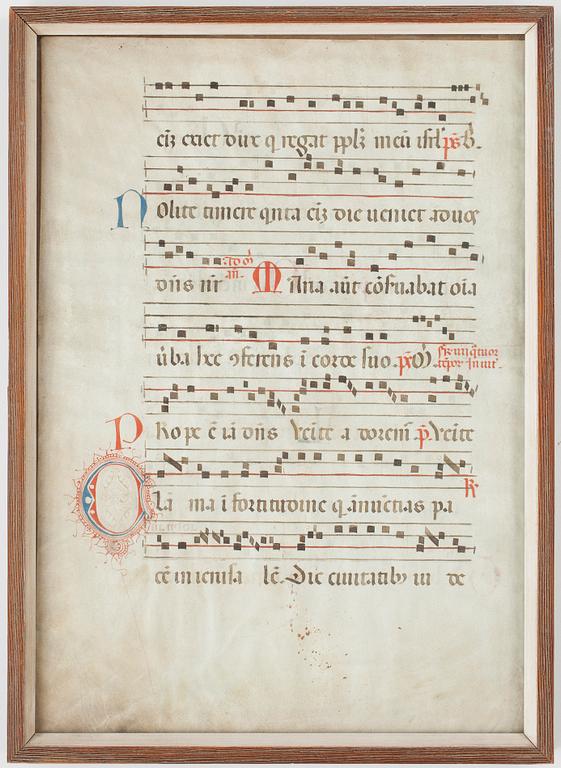 ciꝫ exiet dux q regat pplꝫ meū isrl ps B.
Nolite timere qnta eiꝫ die veniet ad vos
dn̄s nr̄ ad m̄ an̄. Maria aūt cōsuabat oīa
ūba hec ꝯferens ī corde suo ps
Prope ē iā dn̄s Venite a dorem̄ p̄. Venite
R
Clama ī fortitudine q annūcias pa
cē in ierusa lē. Dic civitatibꝰ iu de